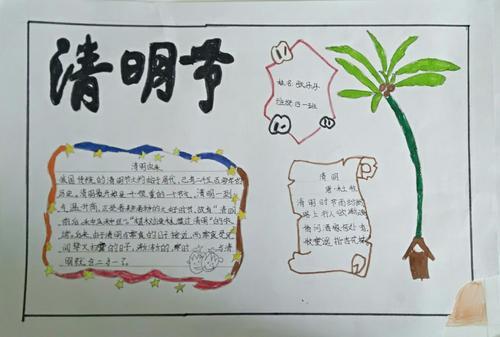 清明节
姓名:欧乐乐
班级:四一班
清明由来
我国传统的清明节大约始于周代,已有二千五百多年的
历史。清明最开始是一个很重要的节气,清明一到,
气温升高,正是春耕春种的大好时节,故有"清明
前后,种瓜种豆"。"植树造林,莫过清明"的农
谚。后来,由于清明与寒食的日子接近,而寒食是民
间禁火扫墓的日子,渐渐的,寒食与清
明就合二为一了。
清明
唐·杜牧
清明时节雨纷纷
路上行人欲断魂
借问酒家何处有
牧童遥指杏花村